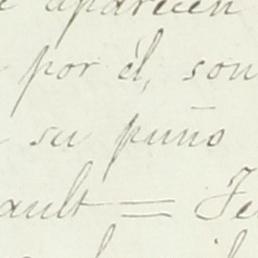 aparecen
por él, son
su puño
ault = Fe